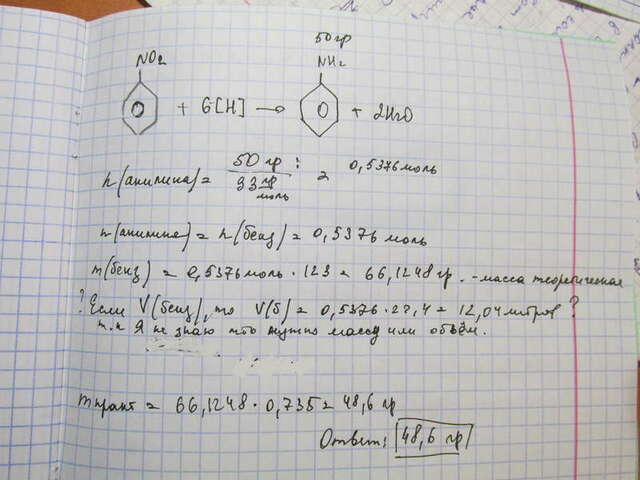 50 гр
NO2 NH2
+ 6[H] → + 2H2O
n(анилина) = 50 гр : / 93 гр/моль = 0,5376 моль
n(анилине) = n(бенз) = 0,5376 моль
m(бенз) = 0,5376 моль · 123 = 66,1248 гр. - масса теоретическая
? Если V(бенз), то V(б) = 0,5376 · 22,4 = 12,04 литров ?
т.к я не знаю что нужно массу или объём.
m практ = 66,1248 · 0,735 = 48,6 гр
Ответ: 48,6 гр